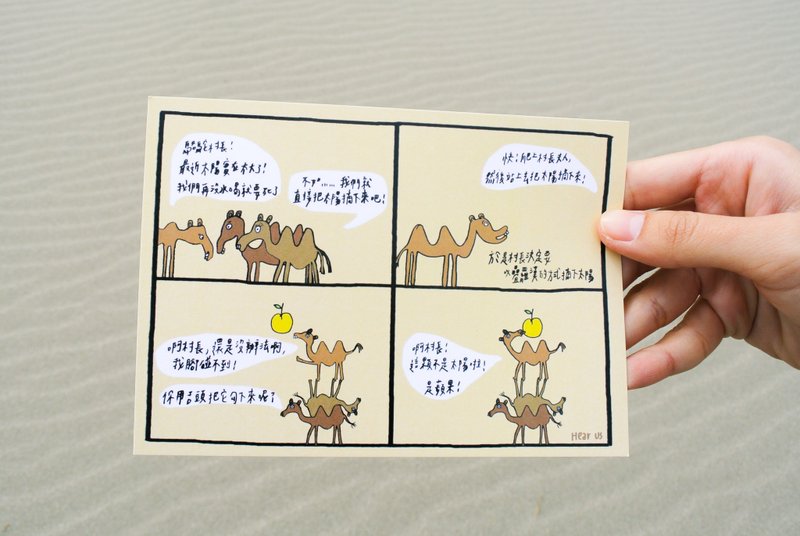 駱駝村長!
最近太陽實在太大了!
我們再沒水喝就要死了
不如……我們就
直接把太陽摘下來吧!
快!爬上村長大人,
然後站上去把太陽摘下來!
於是村長決定要
以疊羅漢的方式摘下太陽
啊村長,還是沒辦法啊,
我腳碰不到!
你用舌頭把它勾下來呢?
啊村長!
這顆不是太陽啦!
是蘋果!
Hear us